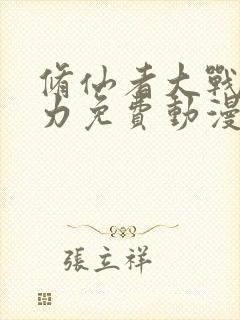 脩仙者大戰
力免費動漫
張立祥